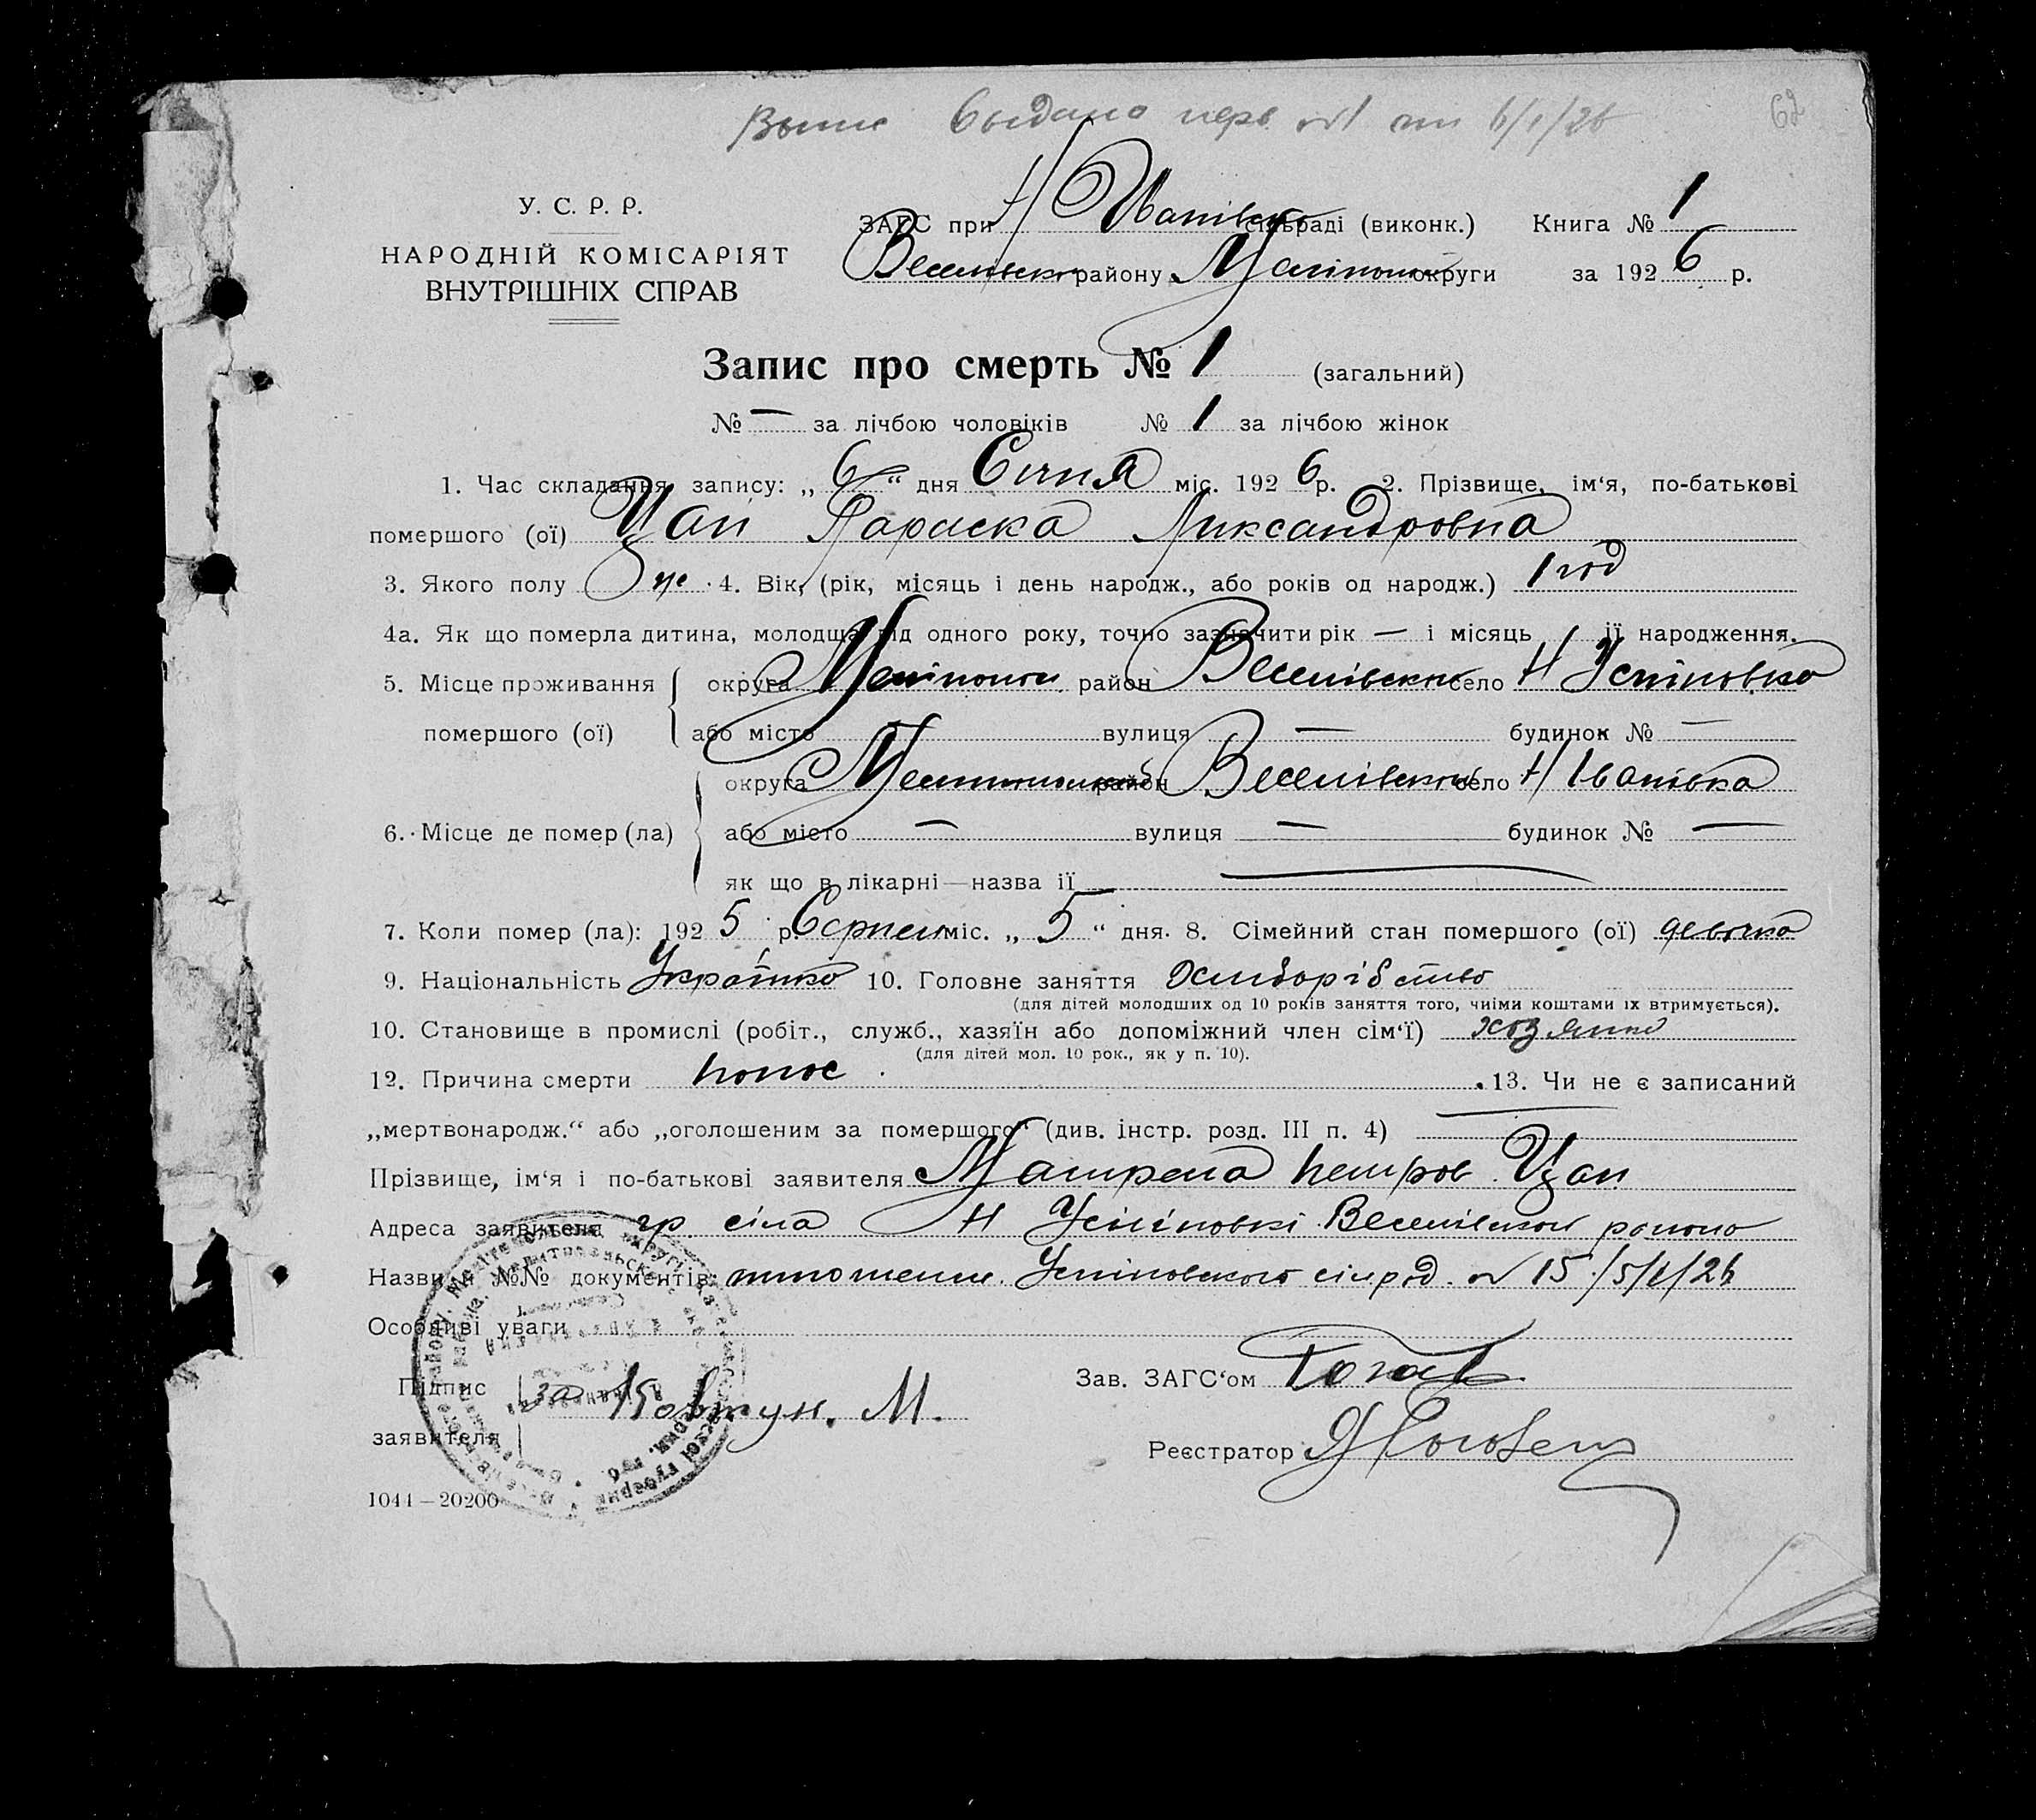 выдано 6/1/26
62
У. С. Р. Р.
НАРОДНІЙ КОМІСАРІЯТ
ВНУТРІШНІХ СПРАВ
ЗАГС при Н Иванівск сільраді (виконк.) Книга № 1
Веселівск району Меліпол округи за 1926 р.
Запис про смерть № 1 (загальний)
№ — за лічбою чоловіків № 1 за лічбою жінок
1. Час складання запису: „6“ дня Січня міс. 1926 р. 2. Прізвище, ім‘я, по-батькові
помершого (ої) Цап Параска Ликсандровна
3. Якого полу Же 4. Вік, (рік, місяць і день народж., або років од народж.) 1 год
4а. Як що померла дитина, молодща від одного року, точно зазначити рік — і місяць її народження.
5. Місце проживання округа район Веселівски село Н Успіновка
помершого (ої) або місто вулиця — будинок № —
округа район Веселівский село Н Іванівка
6. Місце де помер (ла) або місто — вулиця — будинок № —
як що в лікарні—назва ії
7. Коли помер (ла): 1925 р. Серпня міс. „5“ дня. 8. Сімейний стан помершого (ої) девочка
9. Національність Українка 10. Головне заняття Хліборібство
(для дітей молодших од 10 років заняття того, чиіми коштами іх втримується).
10. Становище в промислі (робіт., служб., хазяїн або допоміжний член сім‘ї)
(для дітей мол. 10 рок., як у п. 10).
12. Причина смерти понос 13. Чи не є записаний
„мертвонародж.“ або „оголошеним за помершого“ (див. інстр. розд. III п. 4)
Прізвище, ім‘я і по-батькові заявителя Матрена Петров Цап
Адреса заявителя гр. сіла Н Успіновкі Веселівского
Назви й №№ документів: Успіновского сілрад. № 15/5/1/26
Особливі уваги
Підпис за Ковтун. М.
заявителя
Зав. ЗАГС‘ом
Реєстратор
1044—20200